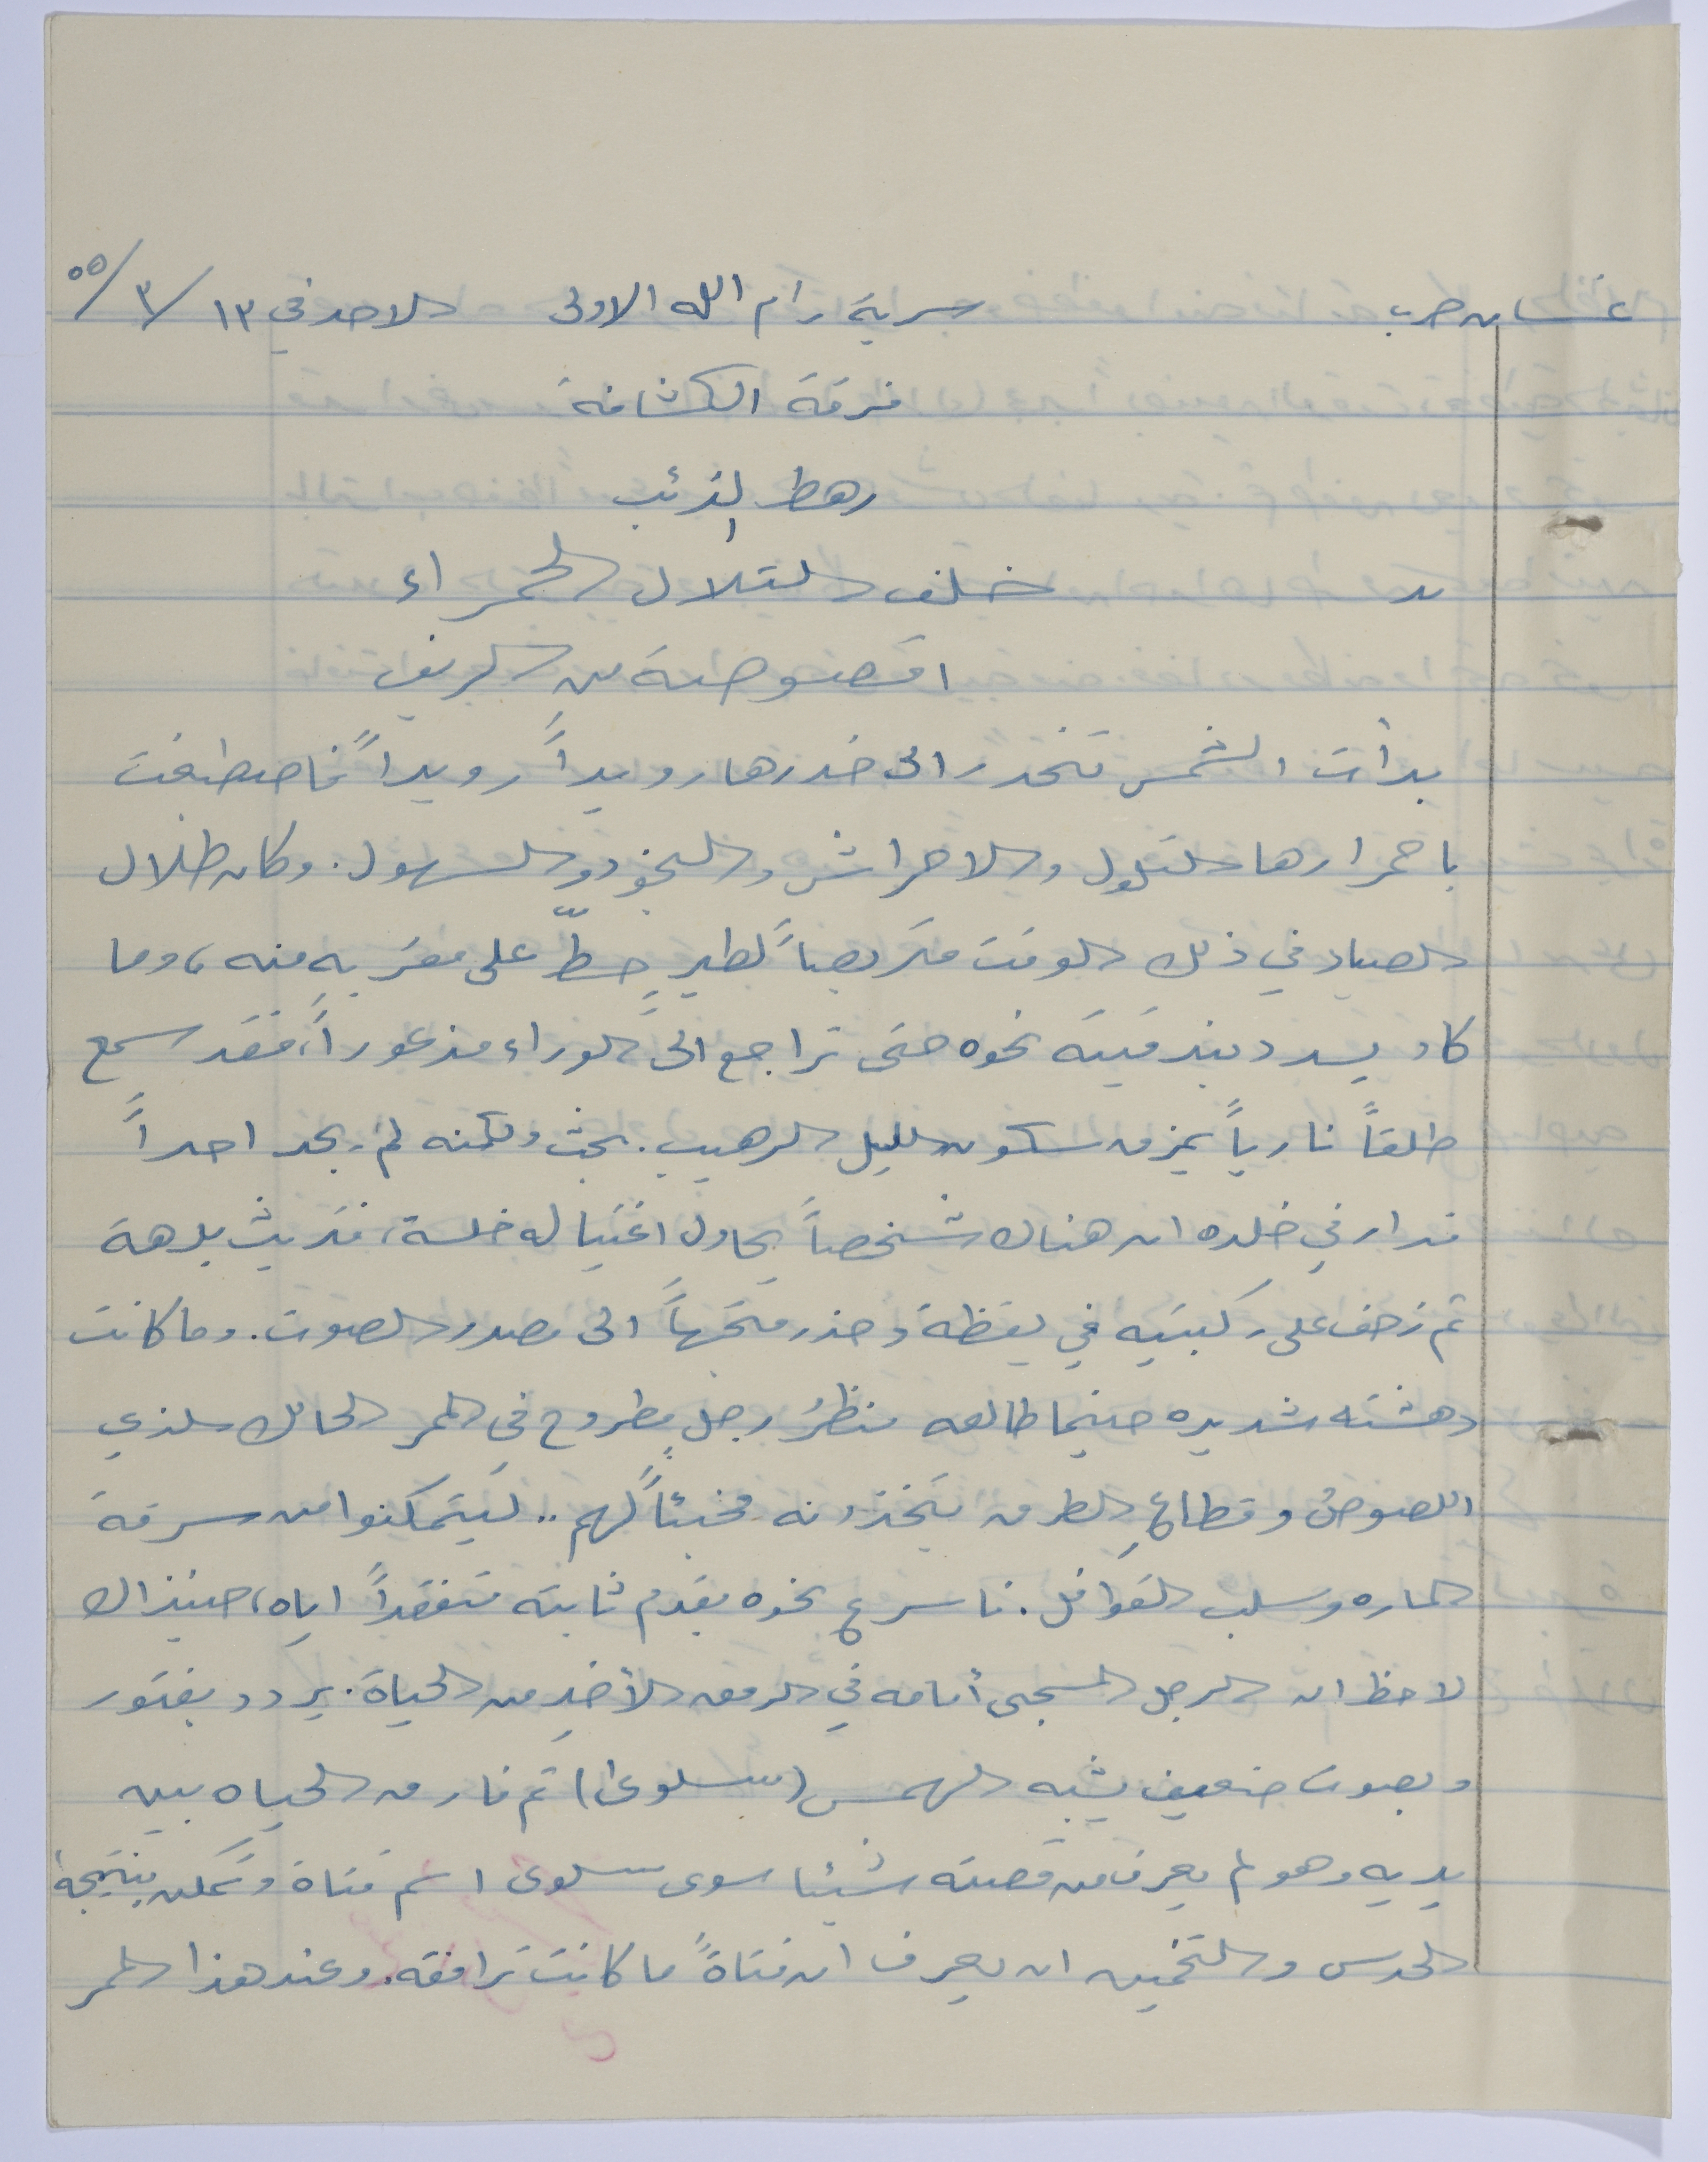 غسان حرب سرية رام الله الاولى الاحد في ١٣/٣/٥٥
فرقة الكشافة
رهط الذئب
خلف التلال الحمراء
اقصوصة من الريف
بدأت الشمس تنحدر الى خدرها رويداً رويداً فاصطبغت
باحمرارها التلول والاحراش والنجود والسهول. وكان طلال
الصياد في ذلك الوقت متربصاً لطيرٍ حطّ على مقربه منه، وما
كاد يسدد بندقيته نحوه حتى تراجع الى الوراء مذعوراً، فقد سمع
طلقاً نارياً يمزق سكون الليل الرهيب. بحث ولكنه لم يجد احداً
فدار في خلده ان هناك شخصاً يحاول اغتياله خلسة، فتريث برهة
ثم زحف على ركبتيه في يقظة وحذر متجهاً الى مصدر الصوت. وما كانت
دهشته شديده حينما طالعه منظرُ رجلٍ مطروحٍ في الممر الحالك الذي
اللصوصُ وقطاعِ الطرق يتخذونه مخبئاً لهم.. ليتمكنوا من سرقة
الماره وسلب القوافل. فاسرع نحوه بقدم ثابتة متفقداً اياه، حينذاك
لاحظ ان الرجل المسجى أمامه في الرمق الأخير من الحياة. يردد بفتور
وبصوت ضعيف يشبه الهمس (سلوى) ثم فارق الحياه بين
يديه وهو لم يعرف من قصته شيئا سوى سلوى اسم فتاة وتمكن بنتيجة
الحدس والتخمين ان يعرف ان فتاةً ما كانت ترافقه. وعند هذا الممر